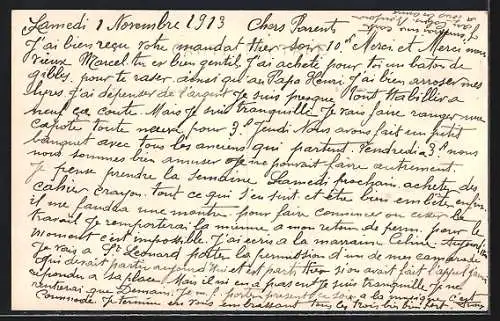 Samedi 1 Novembre 1913 Chers Parents
J'ai bien reçu votre mandat hier soir 10f Merci et Merci mon
vieux Marcel tu es bien gentil J'ai acheté pour toi un baton de
pour te raser ainsi qu'au Papa Henri J'ai bien arroser mes
J'ai dépenser de l'argent Je suis presque tout Habiller a
neuf ça coute. Mais Je suis tranquille Je vais faire ranger une
capote toute neuve pour 3f Jeudi Nous avons fait un petit
banquet avec tous les anciens qui partent. Vendredi a 3f nous
nous sommes bien amuser on ne pouvait faire autrement.
Je pense prendre la semaine Samedi prochain acheter des
cahier crayon. tout ce qui s'en suit et être bien embêter enfin
il me faudra une montre pour faire commencer ou cesser le
travail Je remporterai la mienne a mon retour de perm. pour le
moment c'est impossible. J'ai écris a la marraine Celine Aujourd'hui
Je vais a St Léonard porter la permission d'un de mes camarade
qui devait partir aujourd'hui et est parti hier si on avait fait l'appel j'aurai
répondu a sa place Mais il n'y en a pas eu Je suis tranquille Je ne
rentrerai que Demain. présent soir a la musique c'est
commode Je termine en vous embrassant tous les trois bien fort.